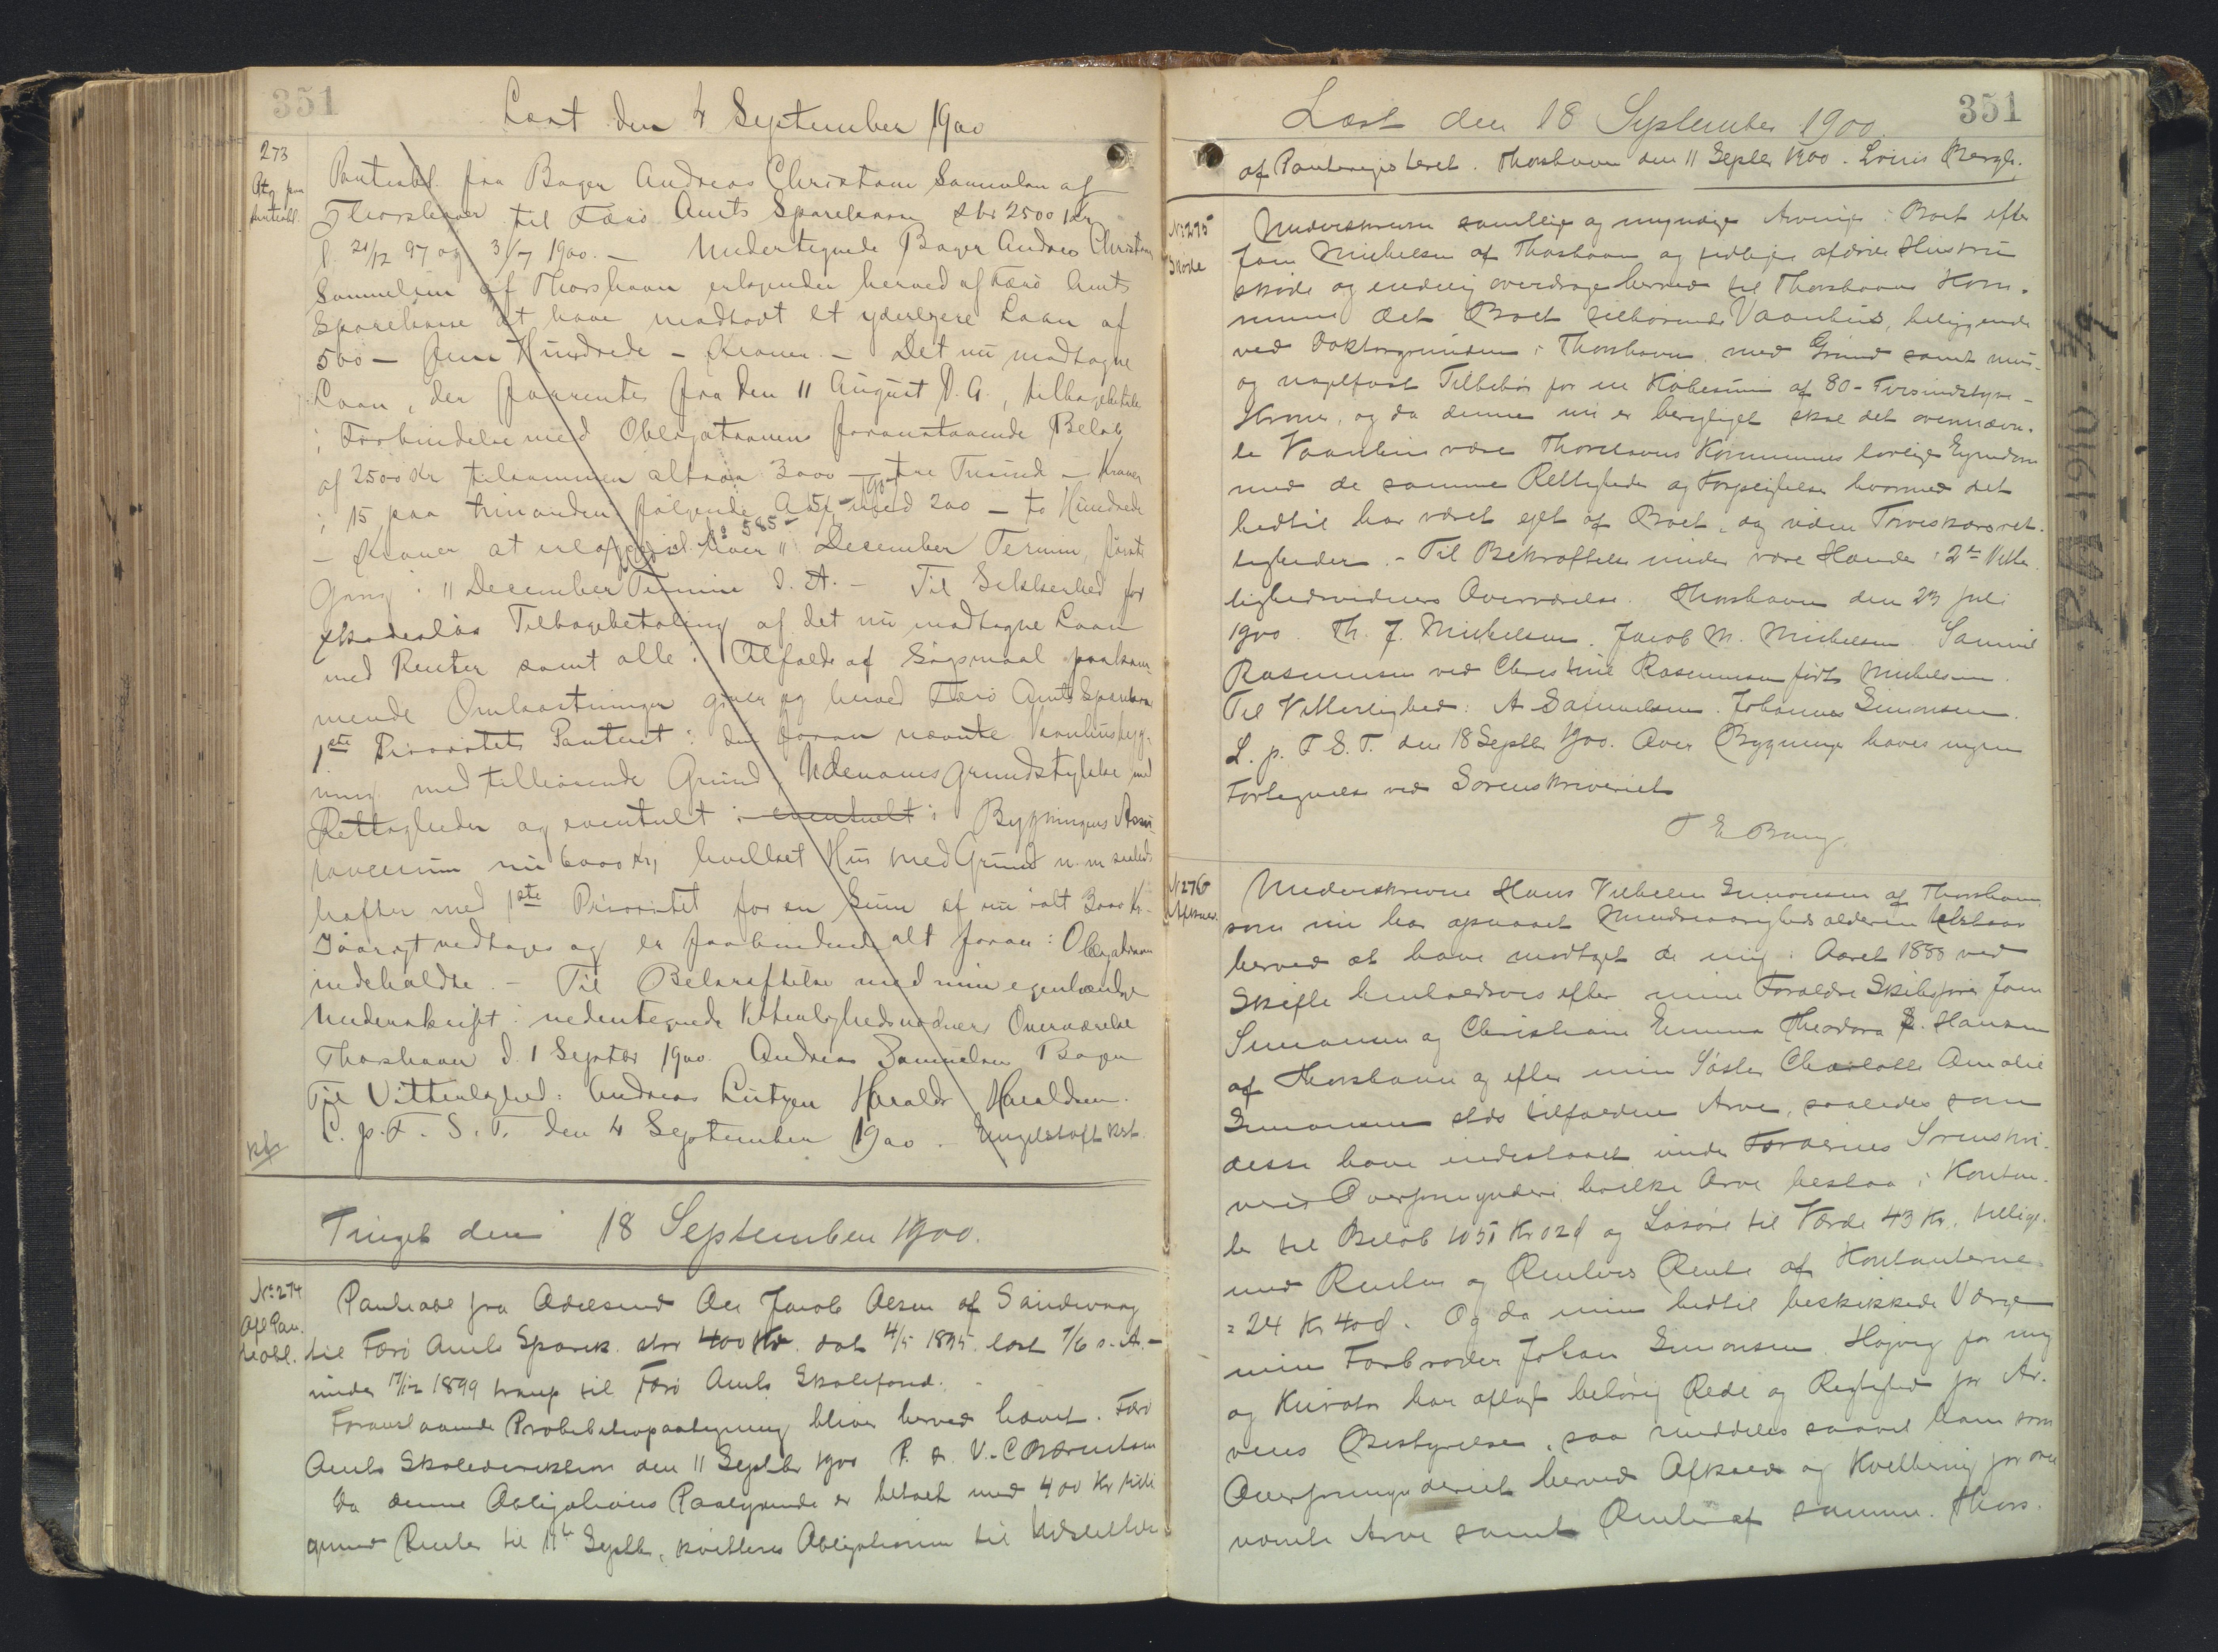 351
Læst den 4 September 1900
273
Ptg paa
Panteobl.
Panteobl. fra Bager Andreas Christian Samuelsen af
Thorshavn til Færö Amts Sparekasse stor 2500 Kr
d. 21/12 97 og 3/7 1900. — Undertegnede Bager Andreas Christian
Samuelsen af Thorshavn erkjender herved af Færö Amts
Sparekasse at have modtaget et yderligere Laan af
500 — Fem Hundrede — Kroner. — Det nu modtagne
Laan, der forrentes fra den 11 August D. A., tilbagebetales
i Forbindelse med Obligationens foranstaaende Beløb
af 2500 Kr tilsammen altsaa 3000 — tre Tusinde — Kroner
i 15 paa hinanden følgende Aar med 200 — to Hundrede
— Kroner at erlægge i hver 11 December Termin, første
Gang i 11 December Termin d. A. — Til Sikkerhed for
skadesløs Tilbagebetaling af det nu modtagne Laan
med Renter samt alle i Tilfælde af Søgsmaal paakom-
mende Omkostninger giver jeg herved Færö Amts Sparekasse
1ste Prioritets Panteret i den foran nævnte Vaanhusbyg-
ning med tilhørende Grund, Udenoms Grundstykke med
Rettigheder og eventuelt i eventuelt i Bygningens Assu-
rancesum nu 6000 Kr, hvilket Hus med Grund m. m. saaledes
hæfter med 1ste Prioritet for en Sum af nu ialt 3000 Kr.
Iøvrigt vedtages og er forbindende alt foran i Obligationen
indeholdte. — Til Bekræftelse med min egenhændige
Underskrift i nedentegnede Vitterlighedsvidners Overværelse
Thorshavn d. 1 Septbr 1900. Andreas Samuelsen Bager
Til Vitterlighed: Andreas Lützen Harald Haraldsen.
L. p. F. S. T. den 4 September 1900. Ungelstoft kst.
Tinget den 18 September 1900.
No 274
Afl Pan-
teobl.
Panteobl fra Odelsmd Ole Jacob Olsen af Sandevaag
til Færö Amts Sparek. stor 400 Kr. dat 4/5 1895 læst 7/6 s. A. —
under 17/12 1899 transp til Færö Amts Skolefond. —
Foranstaaende Prohibitivpaategning bliver herved hævet. Færö
Amts Skoledirektion den 11 Septbr 1900 P. D. V. C Bærentsen
Da denne Obligations Paalydende er betalt med 400 Kr tilli-
gemed Renter til 11te Septbr, kvitteres Obligationen til Udslettelse
351
Læst den 18 September 1900.
af Panteregisteret. Thorshavn den 11 Septbr 1900. Louis Bergh.
No 275
Skøde
Underskrevne samtlige og myndige Arvinger i Boet efter
Joen Michelsen af Thorshavn og tidligere afdøde Hustru
skøde og endelig overdrage herved til Thorshavns Kom-
mune det Boet tilhørende Vaanhus, beliggende
ved Doktorgrunden i Thorshavn med Grund samt mur-
og nagelfast Tilbehør for en Købesum af 80 — Firsindstyve —
Kroner, og da denne nu er berigtiget skal det ovennævn-
te Vaanhus være Thorshavns Kommunes lovlige Ejendom
med de samme Rettigheder og Forpligtelser hvormed det
hedtil har været ejet af Boet, og uden Torveskærsret-
tigheder. — Til Bekræftelse under vore Hænder i 2de Vitter-
lighedsvidners Overværelse. Thorshavn den 23 Juli
1900. Th. J. Michelsen. Jacob M. Michelsen. Samuel
Rasmussen ved Christine Rasmussen født Michelsen.
Til Vitterlighed: A Samuelsen. Johannes Simonsen.
L. p. F S. T. den 18 Septbr 1900. Over Bygninge haves ingen
Fortegnelse ved Sorenskriveriet
T E Bang.
No 276
Afkald.
Underskrevne Hans Vilhelm Simonsen af Thorshavn
som nu har opnaaet Mindreaarigheds alderen tilstaar
herved at have modtaget de mig i Aaret 1888 ved
Skifte henholdsvis efter mine Forældre Skibsfører Joen
Simonsen og Christiane Emma Theodora f. Hansen
af Thorshavn og efter min Søster Charlotte Amalie
Simonsen sts tilfaldne Arve, saaledes som
disse have indestaaet under Færøernes Sorenskri-
veris Overformynderi, hvilke Arve bestaa i Kontan-
te til Beløb 1051 Kr 02 d og Løsøre til Værdi 43 Kr, tillige-
med Renter og Renters Rente af Kontanterne
= 24 Kr 40 d. Og da min hidtil beskikkede Værge
min Farbroder Johan Simonsen Højvig for mig
og Kurator har aflagt behørig Rede og Rigtighed for Ar-
vens Bestyrelse, saa meddeles saavel ham som
Overformynderiet herved Afkald og Kvittering for oven-
nævnte Arve samt Renter af samme. Thors-